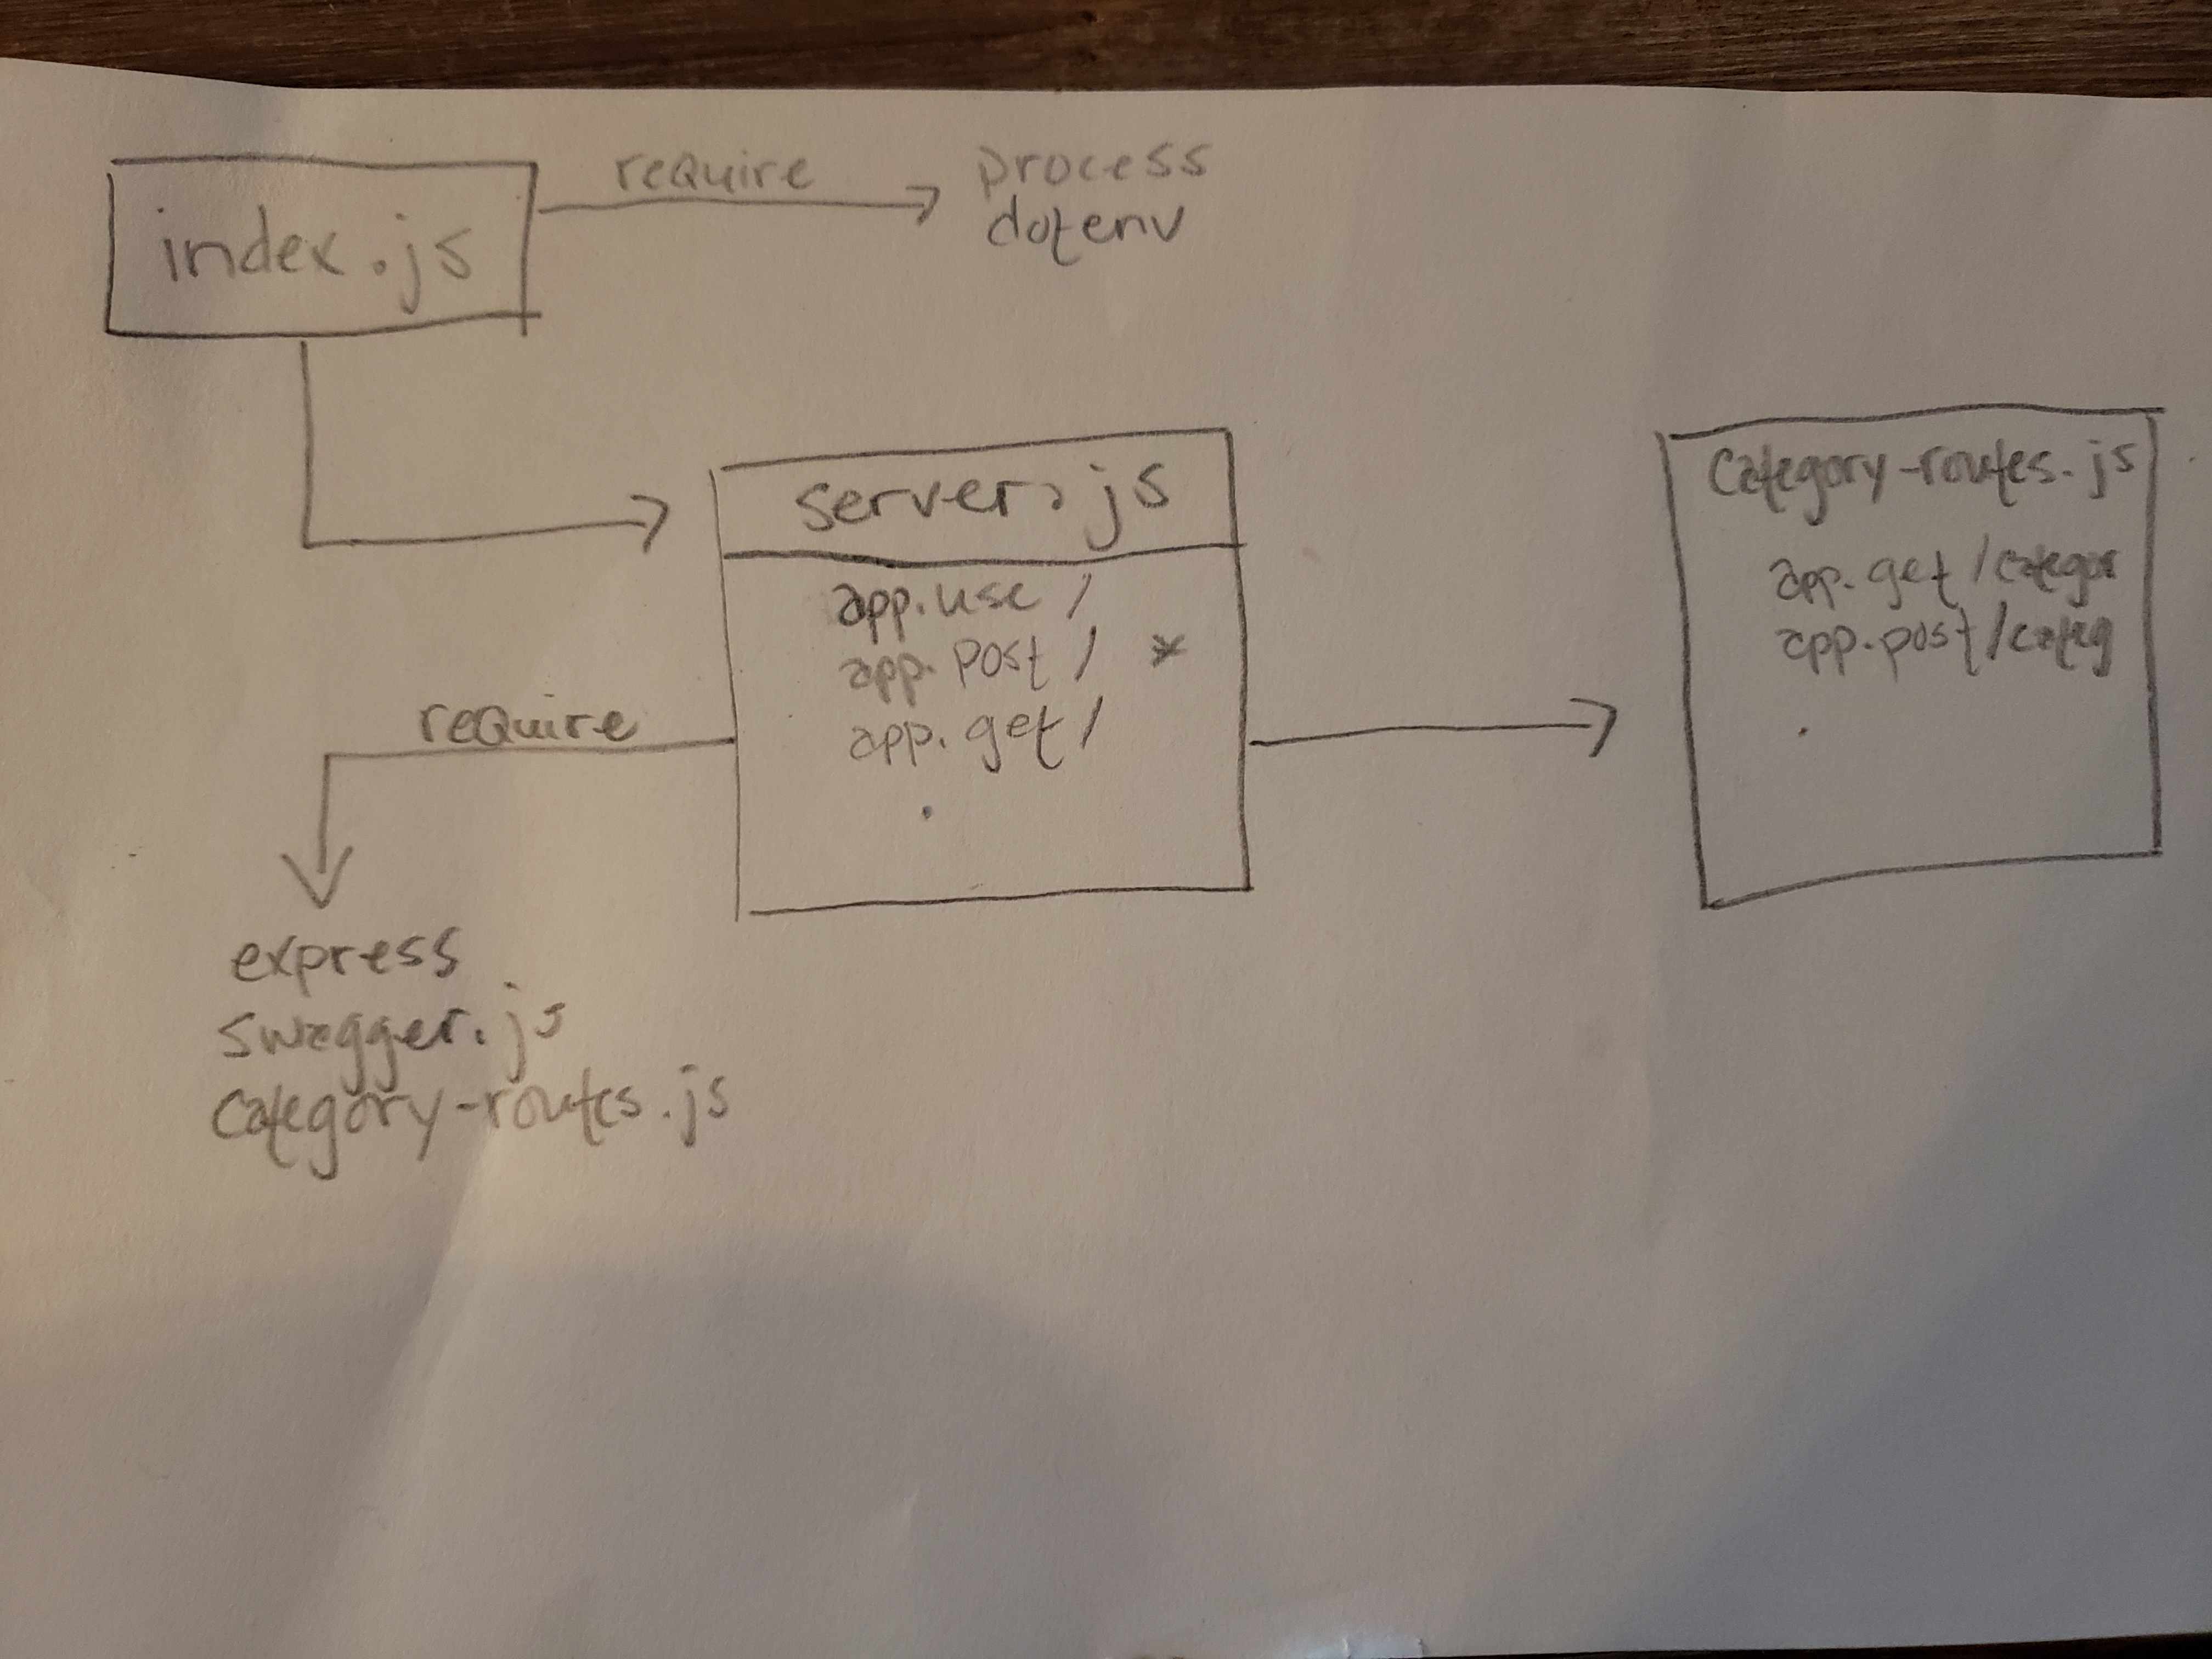 index.js
require
process
dotenv
server.js
app.use /
app.post / *
app.get /
.
require
express
swagger.js
category-routes.js
Category-routes.js
app.get /categor
app.post /categ
.